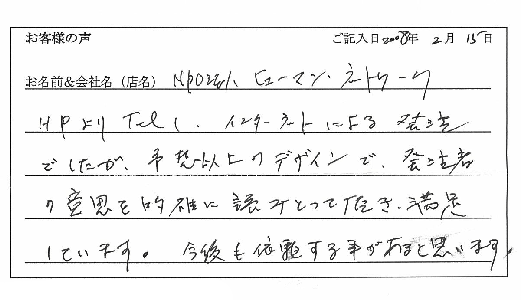 お客様の声 ご記入日2008年 2月 15日
お名前&会社名(店名) NPO法人 ヒューマン・ネットワーク
HPよりTelし、インターネットによる発注
でしたが、予想以上のデザインで、発注者
の意思を的確に読みとって頂き、満足
しています。 今後も依頼する事があると思います。